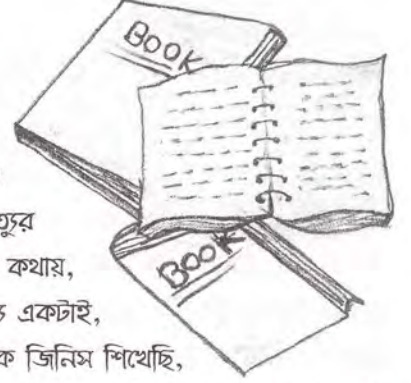 BOOK
BOOK
কথায়,
একটাই,
জিনিস শিখেছি,